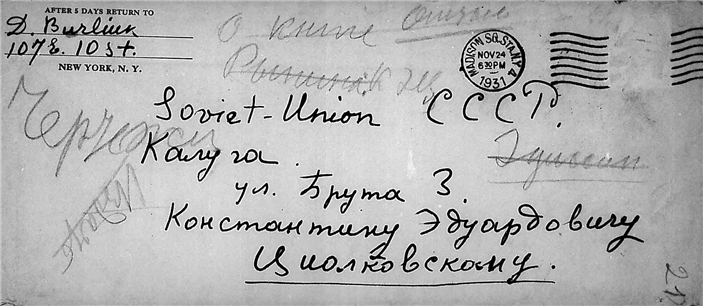 AFTER 5 DAYS RETURN TO
D. Burliuk
107 E. 10 St.
NEW YORK, N. Y.
О книге
MADISON SQ. STA. N.Y. 4
NOV 24
6 30 PM
1931
Soviet-Union СССР.
Калуга.
ул. Брута 3.
Константину Эдуардовичу
Циолковскому.